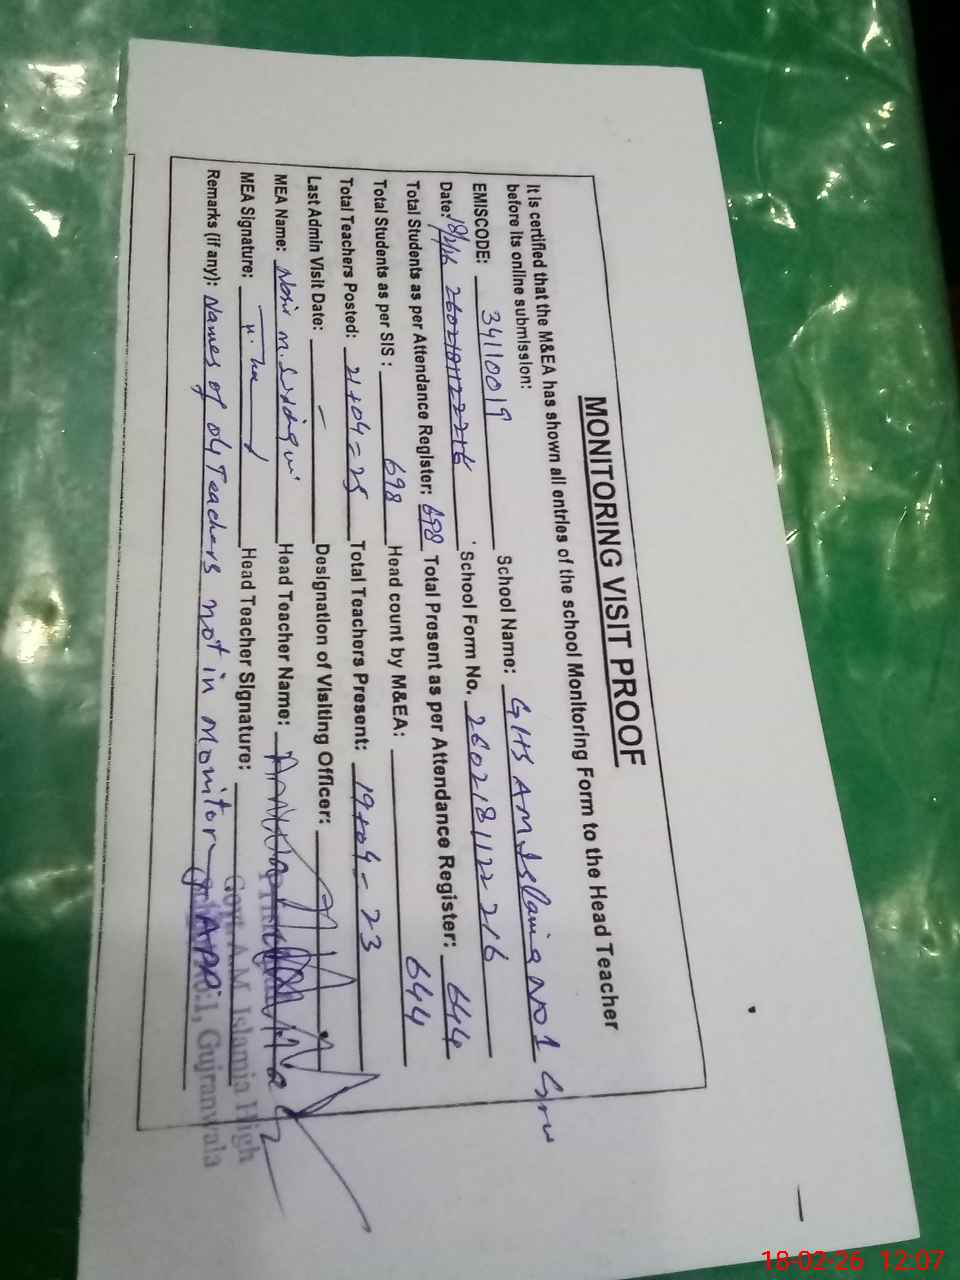 MONITORING VISIT PROOF
It is certified that the M&EA has shown all entries of the school Monitoring Form to the Head Teacher
before its online submission:
EMISCODE: 34110019 School Name: GHS AM Islamia No 1 Grw
Date: 18/2/26 School Form No. 2602181122216
Total Students as per Attendance Register: 698 Total Present as per Attendance Register: 644
Total Students as per SIS: 698 Head count by M&EA: 644
Total Teachers Posted: 21+04=25 Total Teachers Present: 19+04=23
Last Admin Visit Date: – Designation of Visiting Officer:
MEA Name: Nasir M. Siddiqui Head Teacher Name:
MEA Signature: Head Teacher Signature:
Remarks (if any): Names of 04 Teachers not in Monitoring App.
Principal
Govt. A.M. Islamia High
School No.1, Gujranwala
18-02-26 12:07